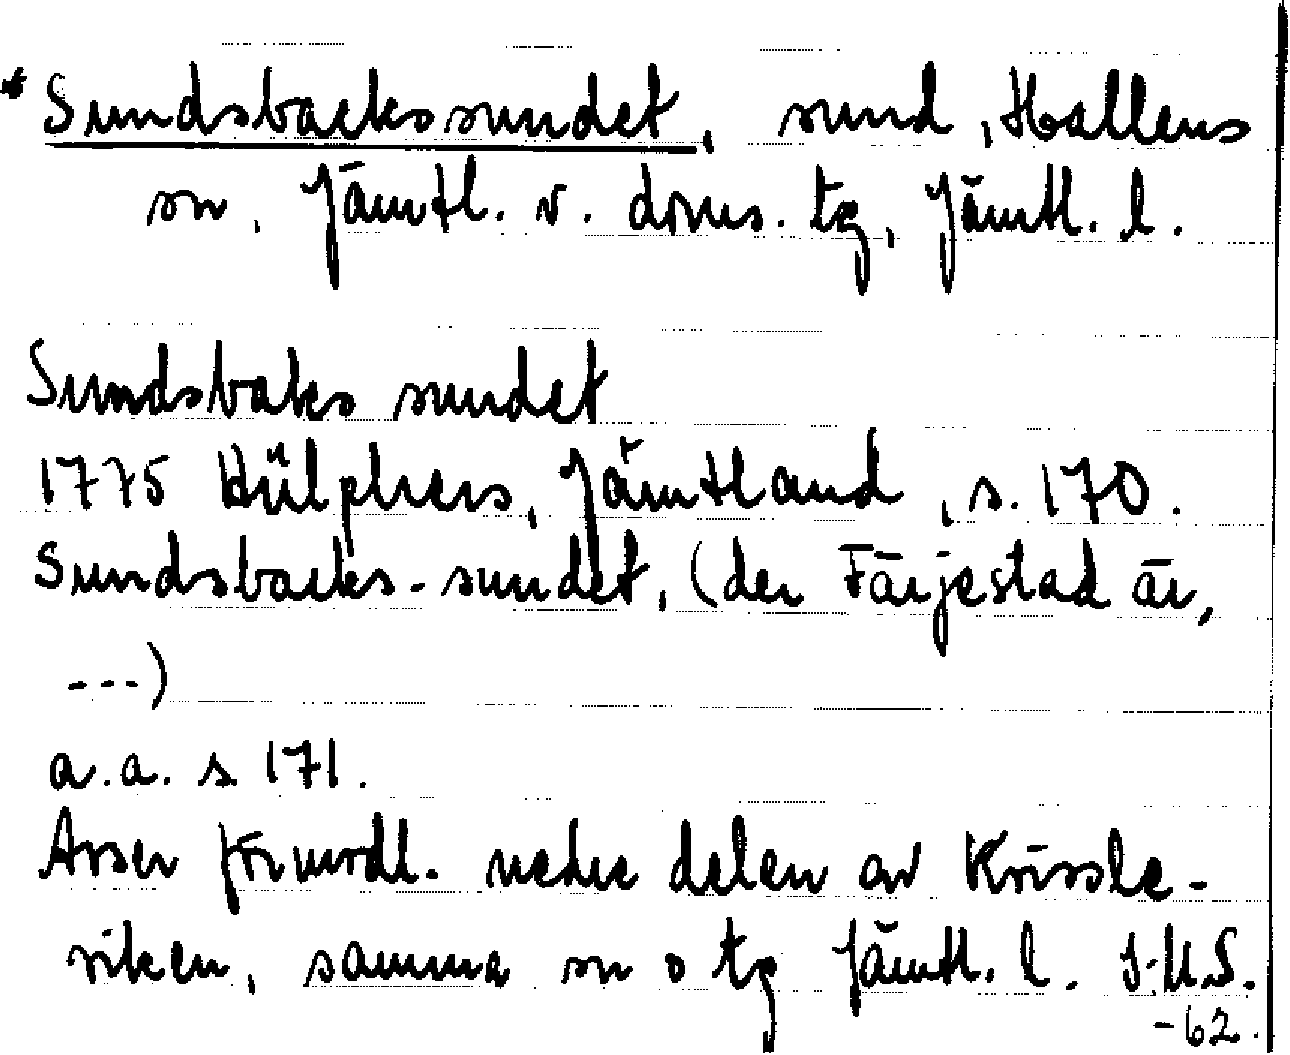 * Sundsbackssundet, sund, Hallens
sn, Jämtl. v. doms. tg, Jämtl. l.
Sundsbaks sundet
1775 Hülphers, Jämtland, s. 170.
Sundsbacks-sundet, (der Färjestad är,
---)
a.a. s. 171.
Avser förmodl. nedre delen av Kössle-
viken, samma sn o tg Jämtl. l.
-62.